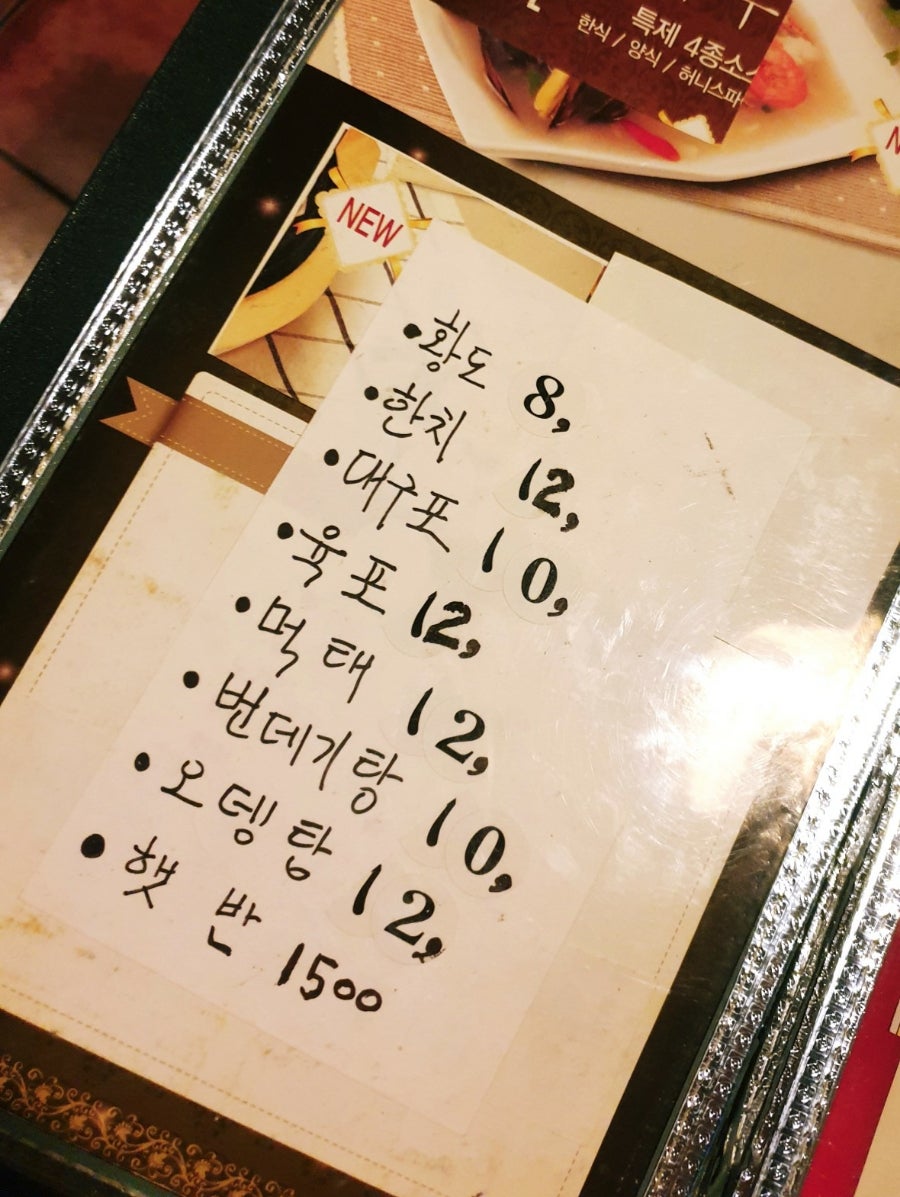 특제 4종소스
한식 / 양식 / 허니스파
NEW
•황도 8,
•한치 12,
•대구포 10,
•육포 12,
•먹태 12,
•번데기탕 10,
•오뎅탑 12,
•햇반 1500